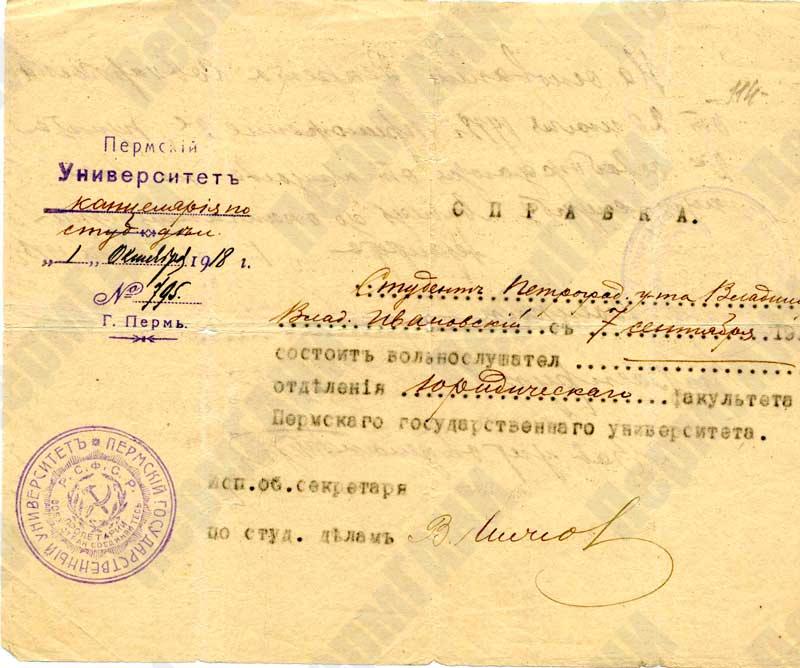 114
Пермскій
Университетъ
канцелярія по
студ. дѣл.
„ 1 „ Октября 1918 г.
№ 795.
Г. Пермь.
СПРАВКА.
Студентъ Петроград. у-та Владим
Влад. Ивановскій съ 7 сентября 19
состоитъ вольнослушател
отдѣленія Юридическаго факультета
Пермскаго государственнаго университета.
Исп.об.секретаря
по студ. дѣламъ В.
ПЕРМСКІЙ ГОСУДАРСТВЕННЫЙ УНИВЕРСИТЕТЪ
Р.С.Ф.С.Р.
ПРОЛЕТАРИИ ВСЕХ СТРАН СОЕДИНЯЙТЕСЬ